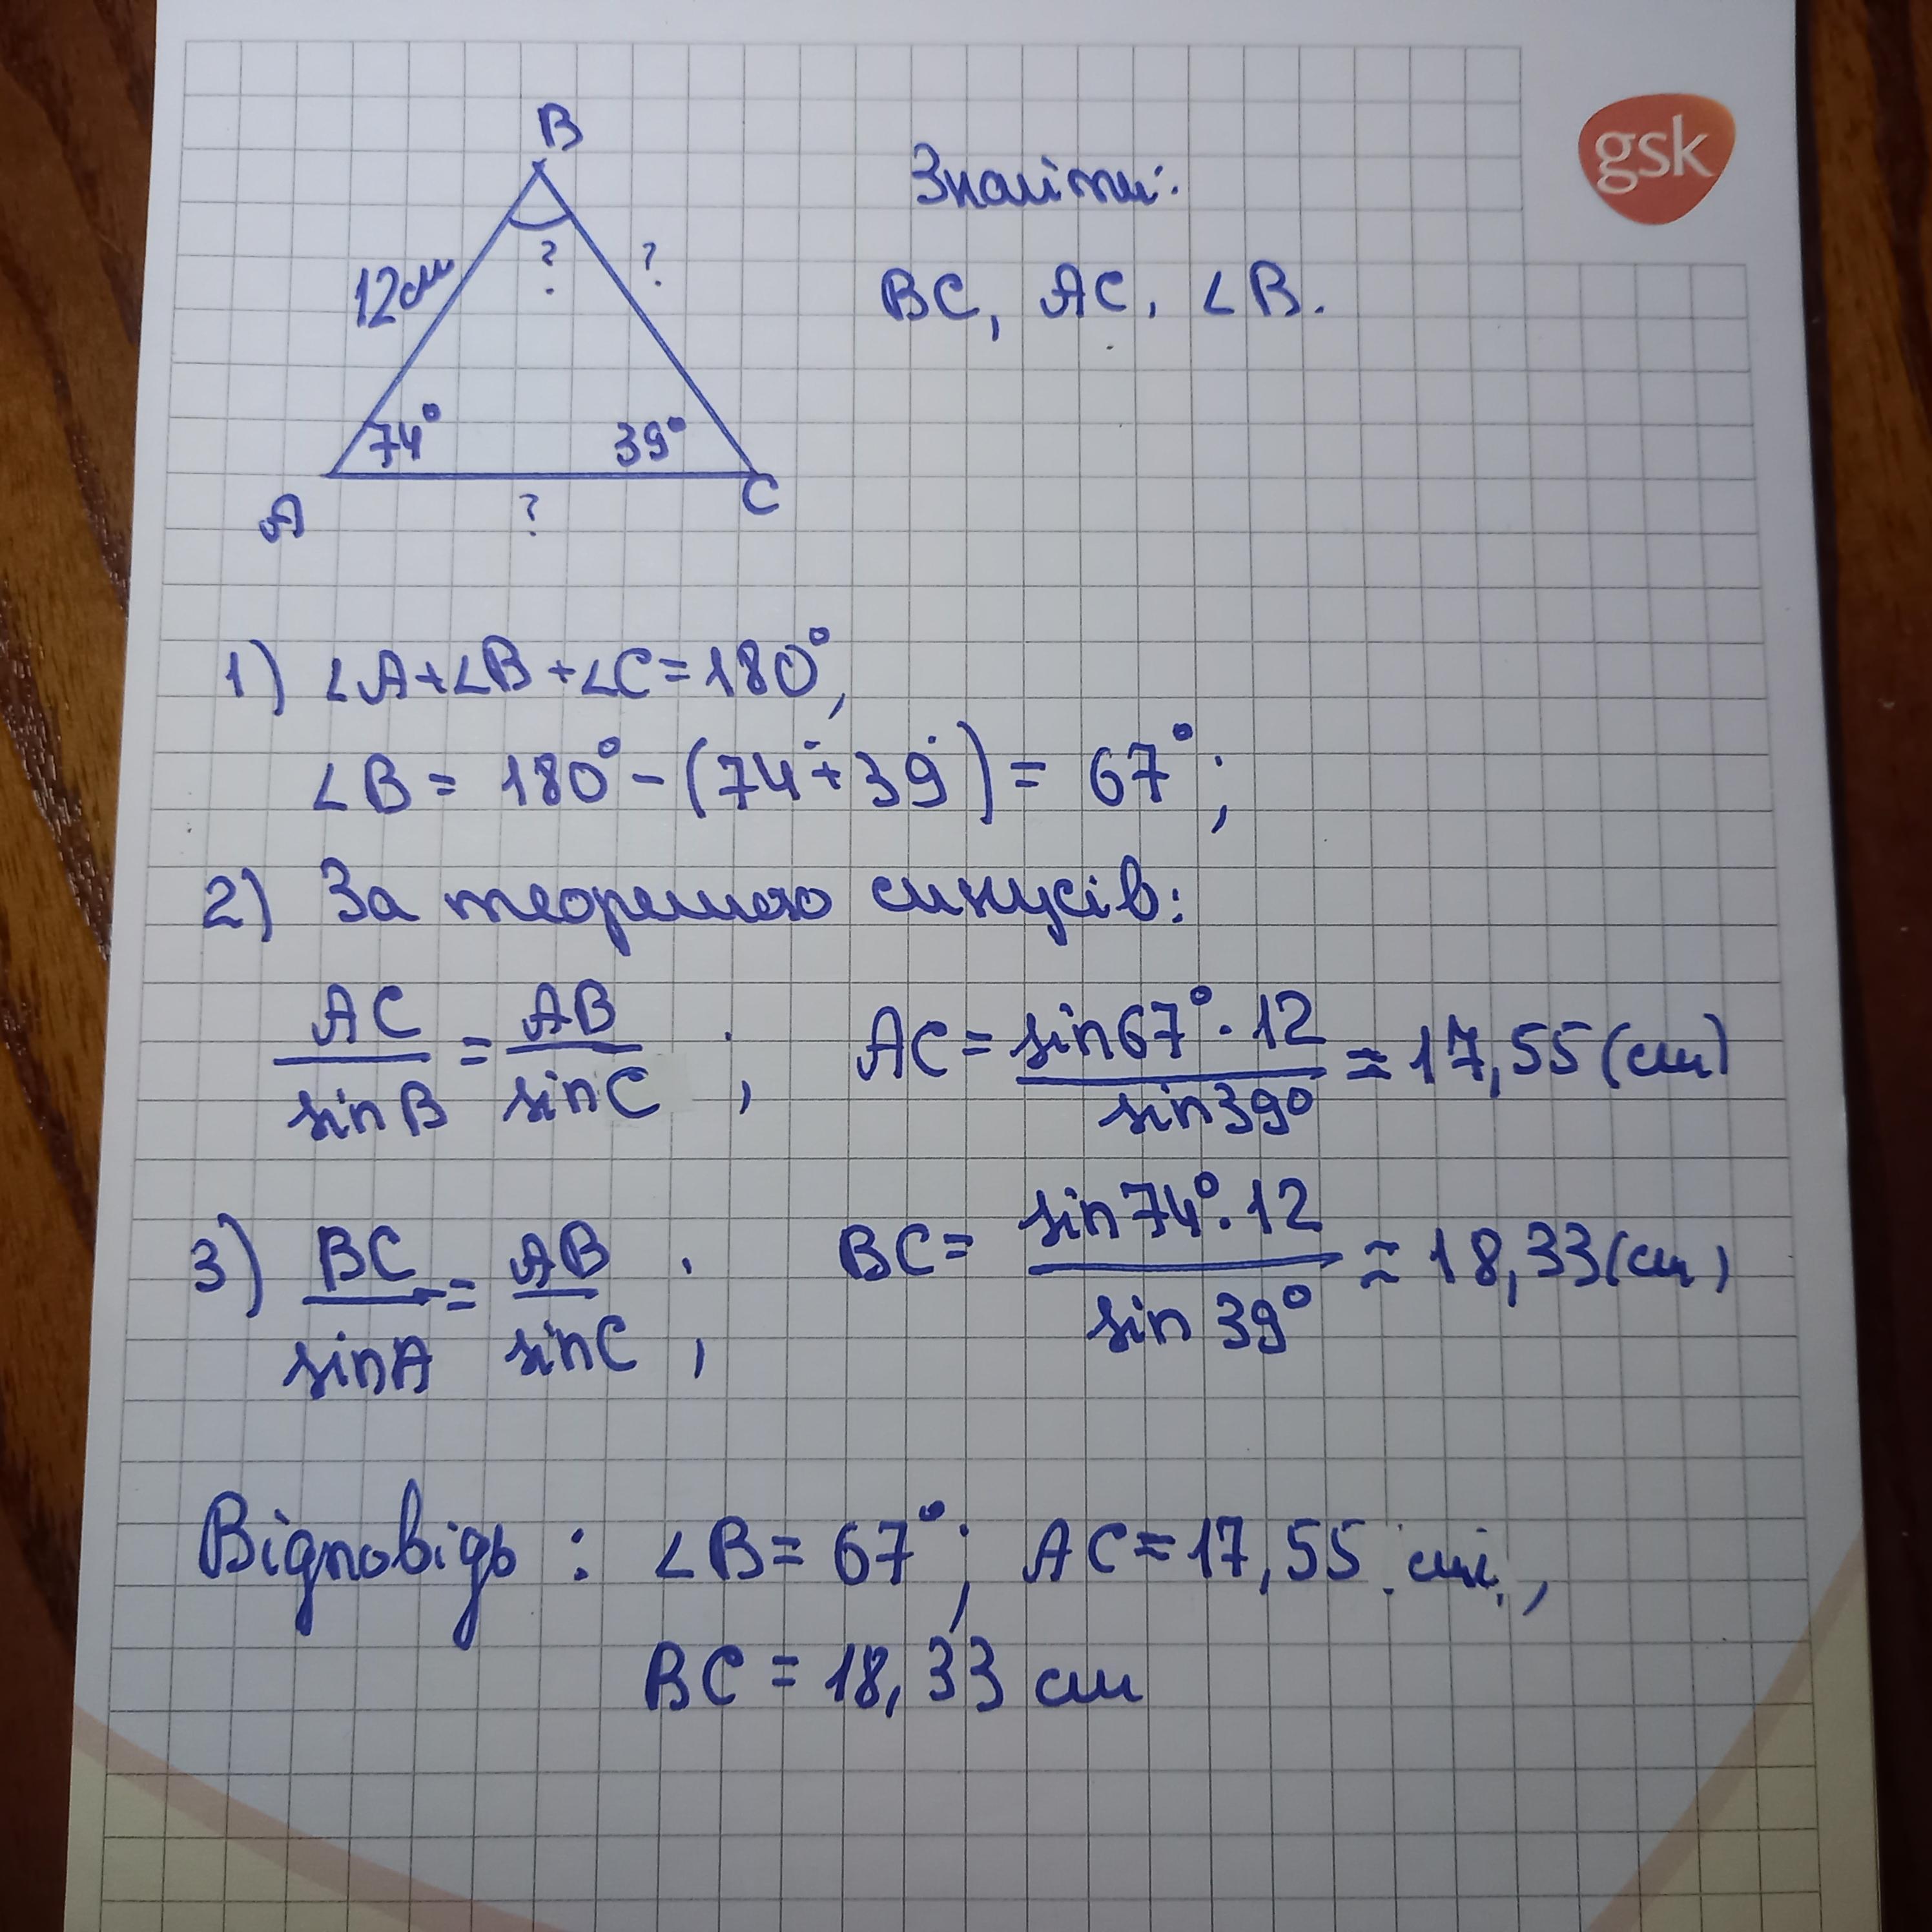 gsk
B
Знайти:
12см ? ?
BC, AC, ∠B.
74° 39°
A ? C
1) ∠A+∠B+∠C=180°,
∠B = 180° - (74°+39°) = 67°;
2) За теоремою синусів:
AC/sinB = AB/sinC ; AC = sin67°·12/sin39° ≈ 17,55 (см)
3) BC/sinA = AB/sinC ; BC = sin74°·12/sin39° ≈ 18,33 (см)
Відповідь : ∠B = 67°; AC = 17,55 см,
BC = 18,33 см